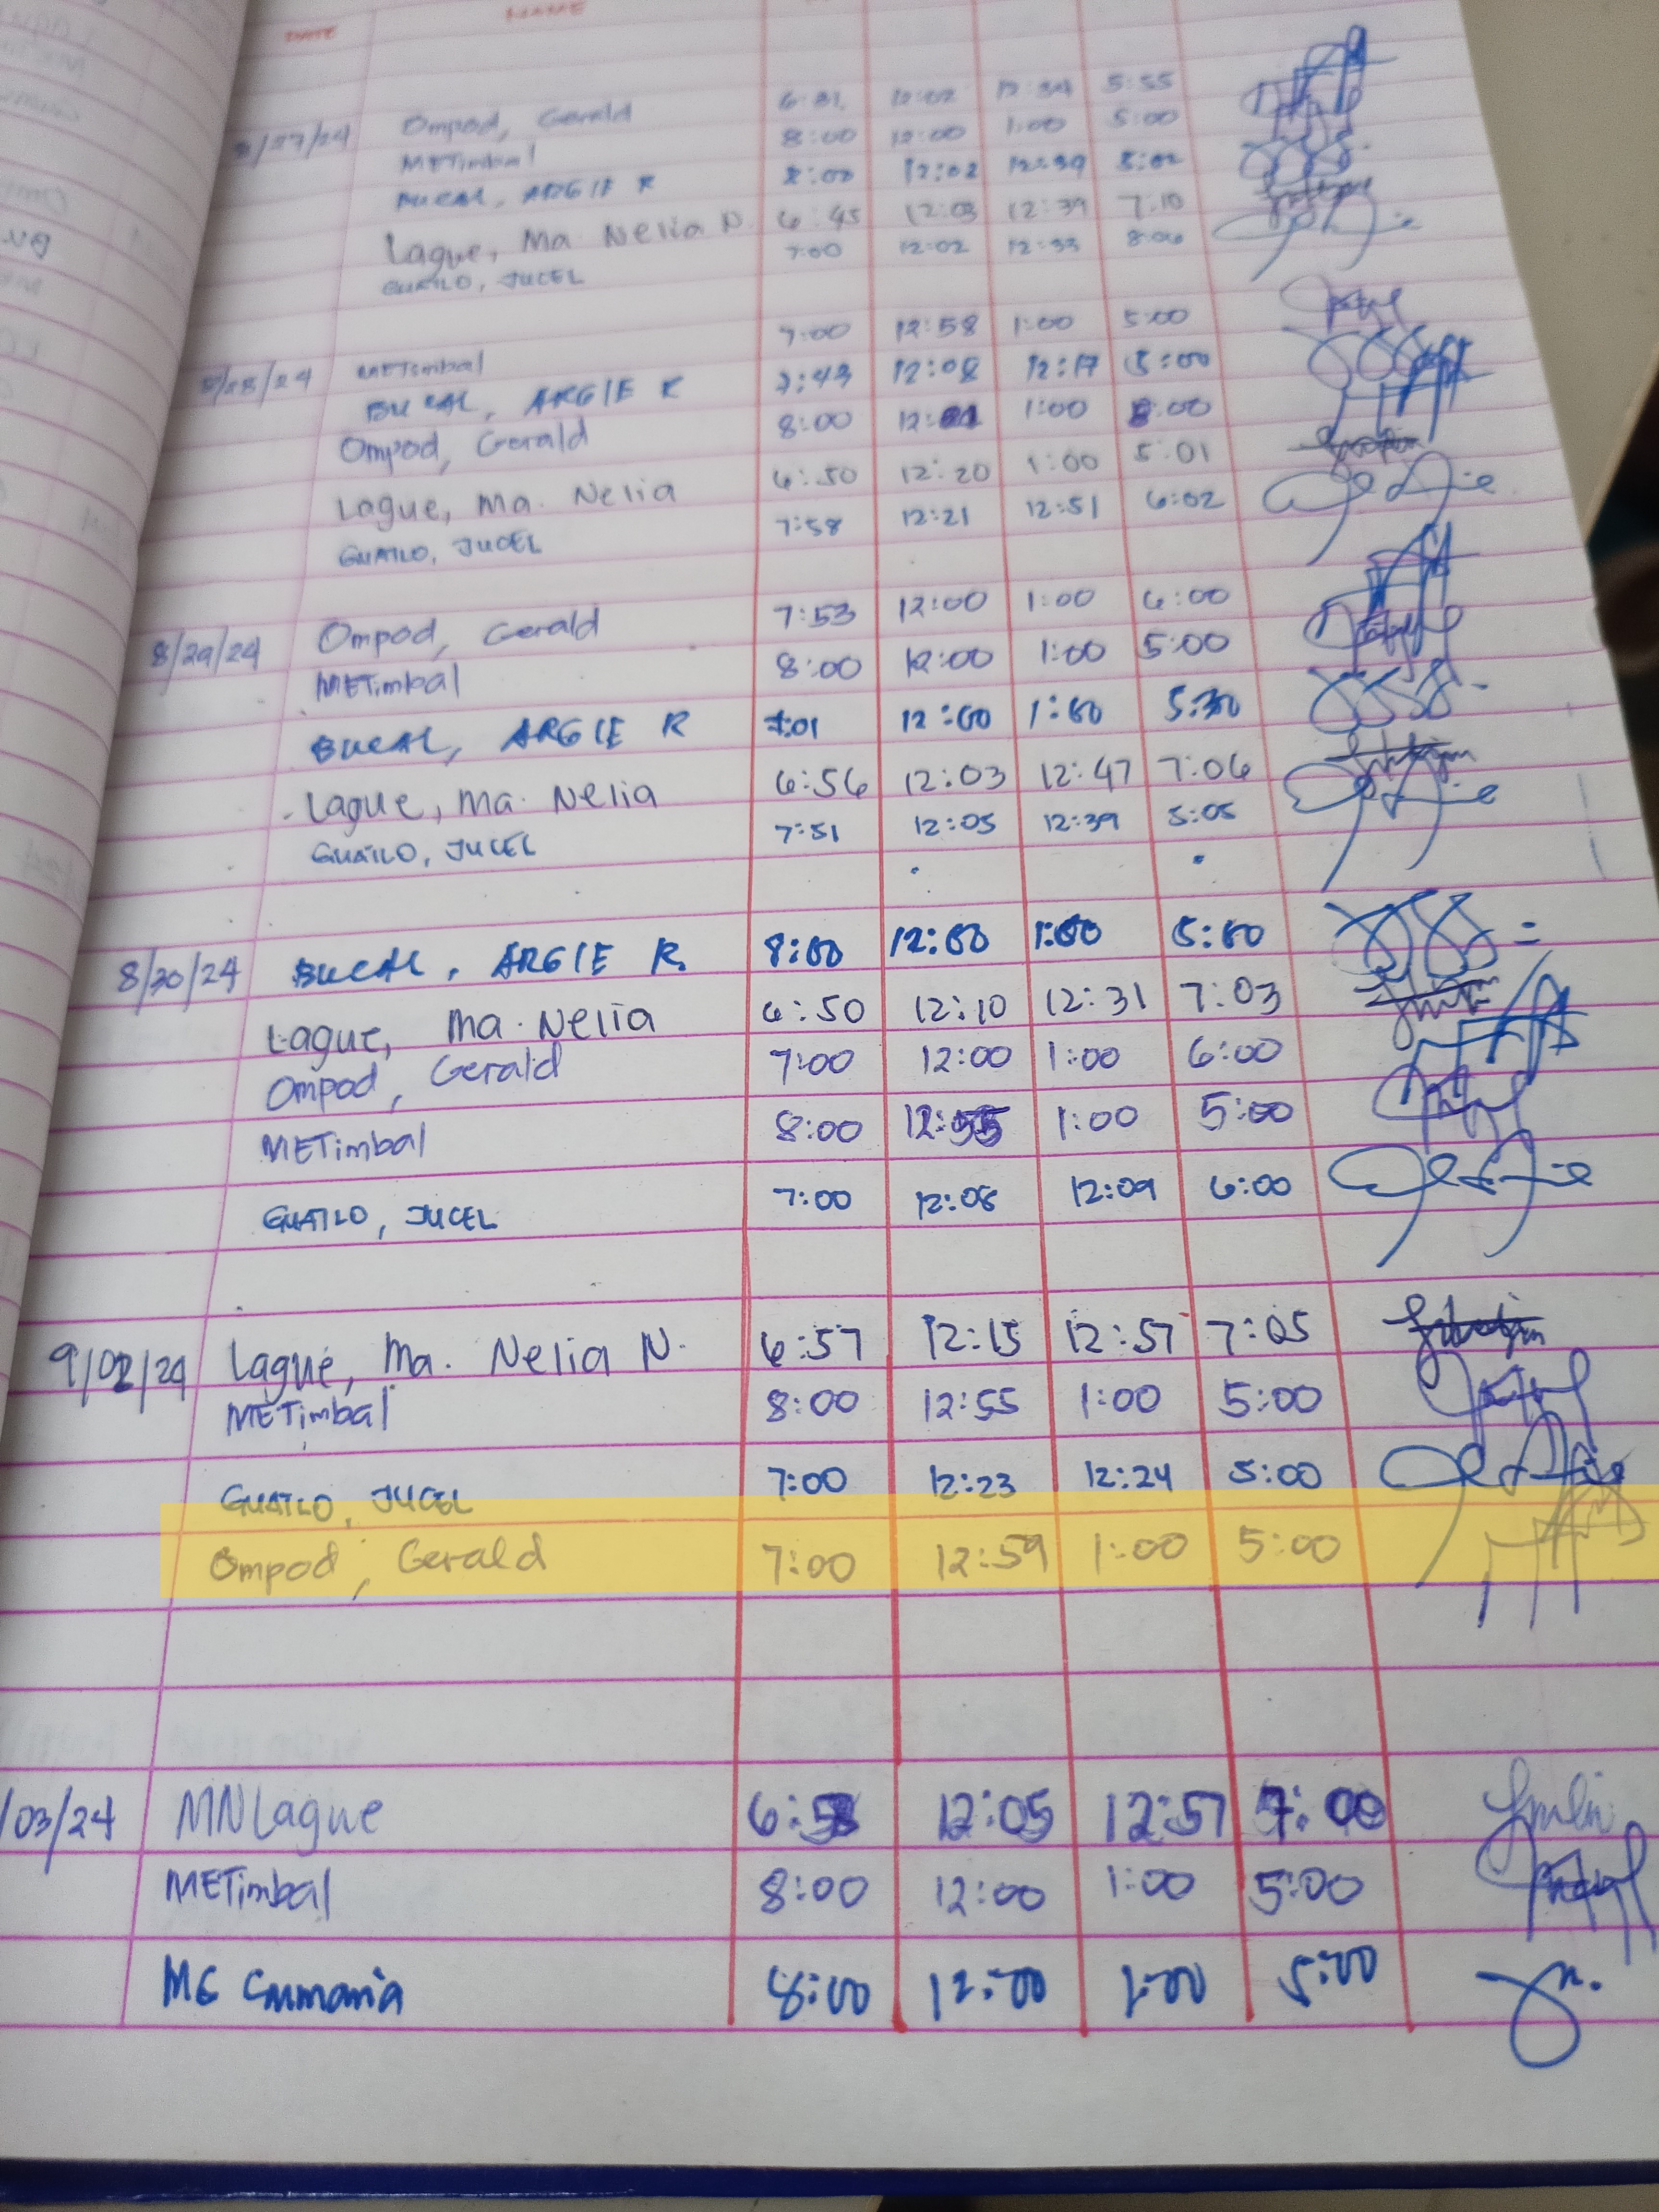 DATE NAME
8/27/24 Ompod, Gerald 6:31 12:02 12:34 5:55
METimbal 8:00 12:00 1:00 5:00
BUCAL, ARGIE R 8:00 12:02 12:39 5:02
Lague, Ma Nelia N. 6:45 12:03 12:39 7:10
GUATLO, JUCEL 7:00 12:02 12:33 8:06
8/28/24 METimbal 7:00 12:58 1:00 5:00
BUCAL, ARGIE R 7:43 12:08 12:17 5:00
Ompod, Gerald 8:00 1:00
Lague, Ma. Nelia 6:50 12:20 1:00 5:01
GUATLO, JUCEL 7:58 12:21 12:51 6:02
8/29/24 Ompod, Gerald 7:53 12:00 1:00 6:00
METimbal 8:00 12:00 1:00 5:00
BUCAL, ARGIE R 7:01 12:00 1:00 5:30
Lague, Ma. Nelia 6:56 12:03 12:47 7:06
GUATLO, JUCEL 7:51 12:05 12:39 5:05
8/30/24 BUCAL, ARGIE R. 8:00 12:00 1:00 5:00
Lague, Ma. Nelia 6:50 12:10 12:31 7:03
Ompod, Gerald 7:00 12:00 1:00 6:00
METimbal 8:00 12:55 1:00 5:00
GUATLO, JUCEL 7:00 12:08 12:09 6:00
9/02/24 Lague, Ma. Nelia N. 6:57 12:15 12:57 7:05
METimbal 8:00 12:55 1:00 5:00
GUATLO, JUCEL 7:00 12:23 12:24 5:00
Ompod, Gerald 7:00 12:59 1:00 5:00
/03/24 MNLague 12:05 12:57 7:00
METimbal 8:00 12:00 1:00 5:00
8:00 12:00 1:00 5:00